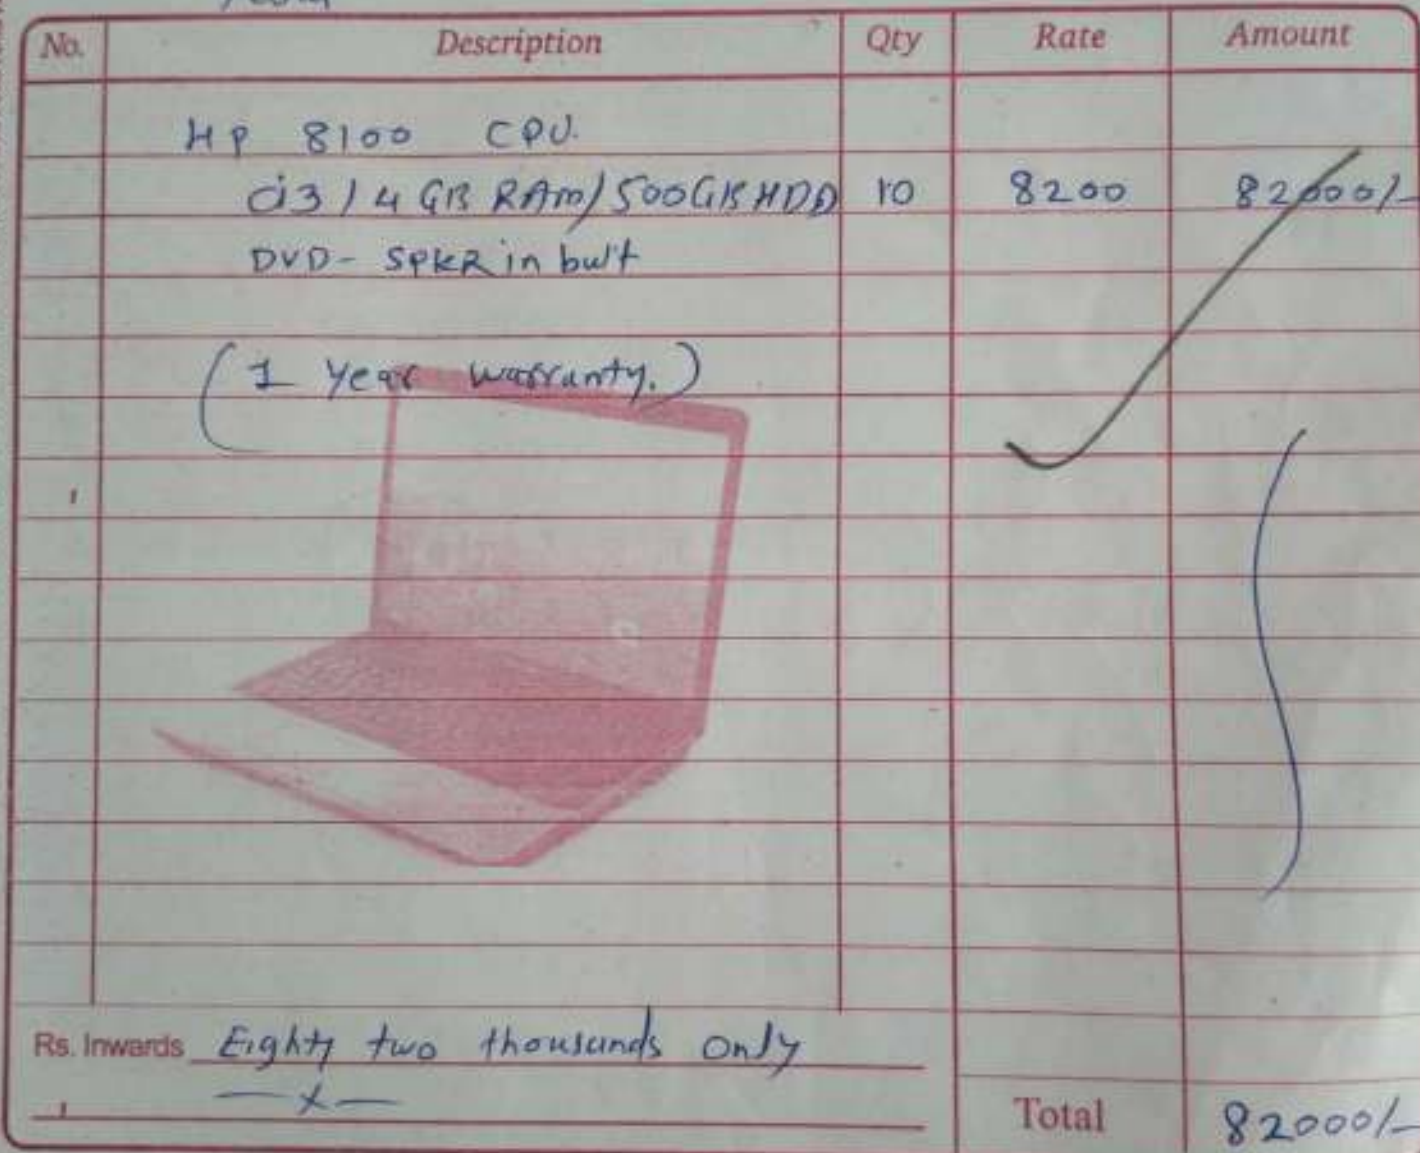 No. Description Qty Rate Amount
HP 8100 CPU.
Ci3 / 4 GB RAM/500GB HDD 10 8200 82000/-
DVD - SPKR in built
(1 Year warranty.)
Rs. Inwards Eighty two thousands only
—x—
Total 82000/-